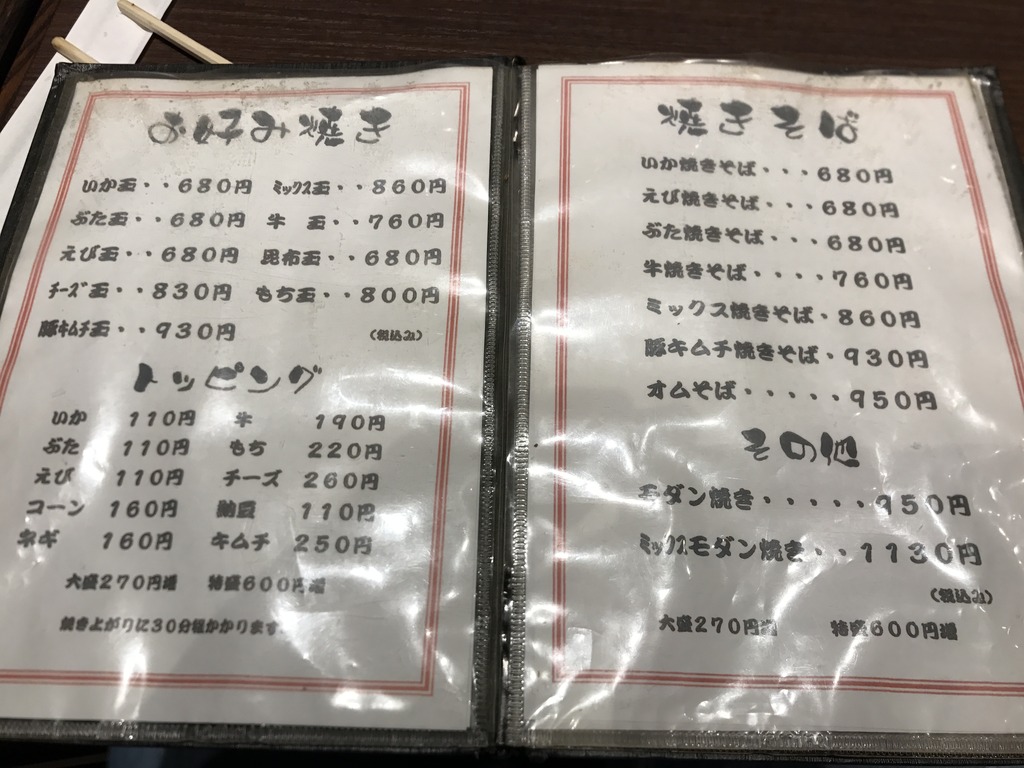 お好み焼き
いか玉・・６８０円　ミックス玉・・８６０円
ぶた玉・・６８０円　牛　玉・・７６０円
えび玉・・６８０円　昆布玉・・６８０円
チーズ玉・・８３０円　もち玉・・８００円
豚キムチ玉・・９３０円　（税込み）
トッピング
いか　１１０円　牛　１９０円
ぶた　１１０円　もち　２２０円
えび　１１０円　チーズ　２６０円
コーン　１６０円　納豆　１１０円
ネギ　１６０円　キムチ　２５０円
大盛２７０円増　特盛６００円増
焼き上がりに３０分程かかります
焼きそば
いか焼きそば・・・６８０円
えび焼きそば・・・６８０円
ぶた焼きそば・・・６８０円
牛焼きそば・・・・７６０円
ミックス焼きそば・８６０円
豚キムチ焼きそば・９３０円
オムそば・・・・・９５０円
その他
モダン焼き・・・・・９５０円
ミックスモダン焼き・・１１３０円
（税込み）
大盛２７０円増　特盛６００円増